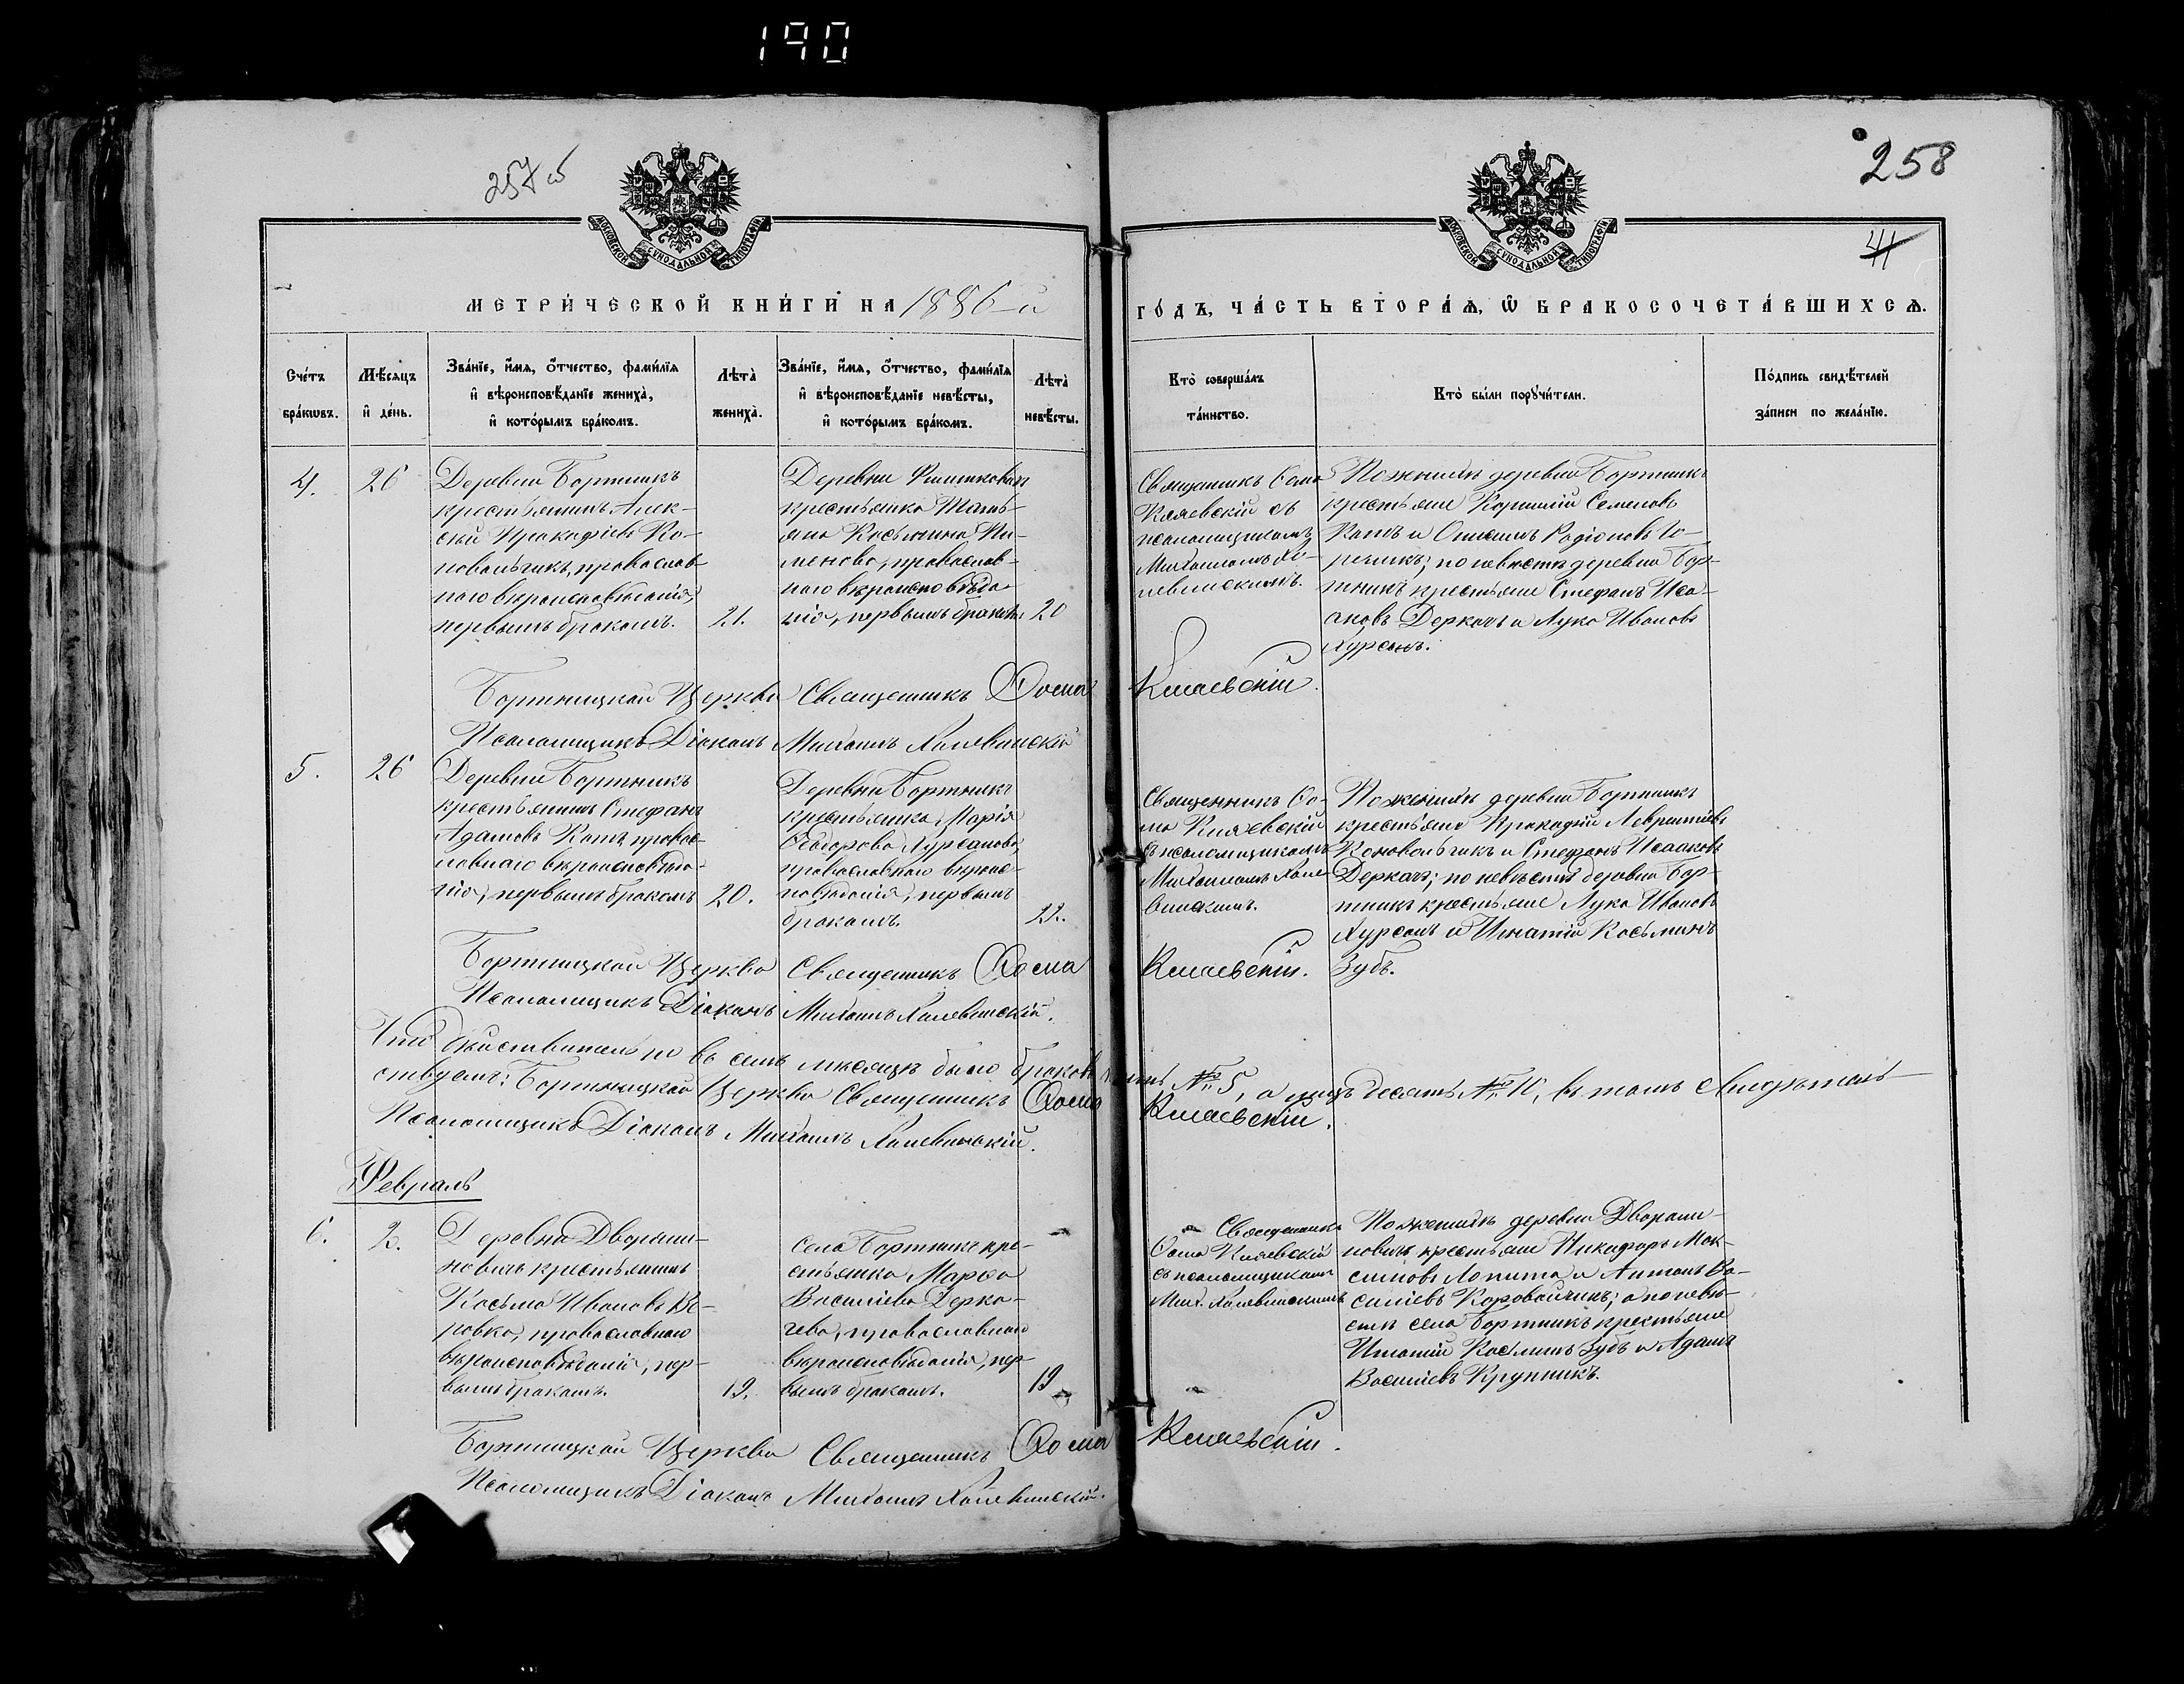 190
257 об
258
41
МОСКОВСКОЙ СѴНОДАЛЬНОЙ ТИПОГРАФІИ
МОСКОВСКОЙ СѴНОДАЛЬНОЙ ТИПОГРАФІИ
МЕТРИ́ЧЕСКОЙ КНИ́ГИ НА 1886-й
ГО́ДЪ, ЧА́СТЬ ВТОРА́Ѧ, Ѿ БРАКОСОЧЕТА́ВШИХСѦ.
Сче́тъ бра́кѡвъ.
Мѣ́сяцъ и҆ де́нь.
Зва́нїе, и҆́мя, ѻ҆́тчество, фами́лїя
и҆ вѣроисповѣ́данїе жениха̀,
и҆ кото́рымъ бра́комъ.
Лѣта̀ жениха̀.
Зва́нїе, и҆́мя, ѻ҆́тчество, фами́лїя
и҆ вѣроисповѣ́данїе невѣ́сты,
и҆ кото́рымъ бра́комъ.
Лѣта̀ невѣ́сты.
Кто̀ соверша́лъ та́инство.
Кто̀ бы́ли порꙋчи́тели.
По́дпись свидѣ́телей
за́писи по жела́нїю.
4.
26
Деревни Бортникъ
крестьянинъ Алек-
сѣй Прокофіевъ Ко-
новальчикъ, православ-
наго вѣроисповѣданія,
первымъ бракомъ.
21.
Деревни
крестьянка Тать-
яна Косьмина
православ-
наго вѣроисповѣда-
нія, первымъ бракомъ
20
Священникъ Ѳома
Кляевскій съ
псаломщикомъ
Михаиломъ Хо-
левинскимъ.
По женихѣ деревни Бортникъ
крестьяне Корнилій Семеновъ
Катъ и Онисимъ Родіоновъ
по невѣстѣ деревни Бор-
тникъ крестьяне Стефанъ Иса-
аковъ Деркачъ и Лука Ивановъ
Хурсанъ.
Бортницкой Церкви Священникъ Ѳома Кляевскій.
Псаломщикъ Діаконъ Михаилъ Холевинскій
5.
26
Деревни Бортникъ
крестьянинъ Стефанъ
Адамовъ Катъ, правос-
лавнаго вѣроисповѣда-
нія, первымъ бракомъ
20.
Деревни Бортникъ
крестьянка Марія
Ѳеодорова Хурсанова,
православнаго вѣроис-
повѣданія, первымъ
бракомъ.
22.
Священникъ Ѳо-
ма Кляевскій
съ псаломщикомъ
Михаиломъ Холе-
винскимъ.
По женихѣ деревни Бортникъ
крестьяне Прокофій Лаврентіевъ
Коновальчикъ и Стефанъ Исааковъ
Деркачъ; по невѣстѣ деревни Бор-
тникъ крестьяне Лука Ивановъ
Хурсанъ и Игнатій Косьминъ
Зубъ.
Бортницкой Церкви Священникъ Ѳома Кляевскій.
Псаломщикъ Діаконъ Михаилъ Холевинскій.
Что дѣйствительно въ семъ мѣсяцѣ было браковъ пять № 5, а лицъ десять № 10, въ томъ свидѣтель-
ствуемъ: Бортницкой Церкви Священникъ Ѳома Кляевскій.
Псаломщикъ Діаконъ Михаилъ Холевинскій.
Февраль
6.
2.
Деревни Дворани-
новичъ крестьянинъ
Косьма Ивановъ
православнаго
вѣроисповѣданія, пер-
вымъ бракомъ.
19.
Села Бортникъ кре-
стьянка Марѳа
Василіева Дерка-
чева, православнаго
вѣроисповѣданія, пер-
вымъ бракомъ.
19
Священникъ
Ѳома Кляевскій
съ псаломщикомъ
Мих. Холевинскимъ
По женихѣ деревни Дворани-
новичъ крестьяне Никифоръ Мак-
симовъ Лопита и Антонъ Ва-
силіевъ Коровайчикъ; а по невѣ-
стѣ села Бортникъ крестьяне
Игнатій Косьминъ Зубъ и Адамъ
Василіевъ Крупникъ.
Бортницкой Церкви Священникъ Ѳома Кляевскій.
Псаломщикъ Діаконъ Михаилъ Холевинскій.